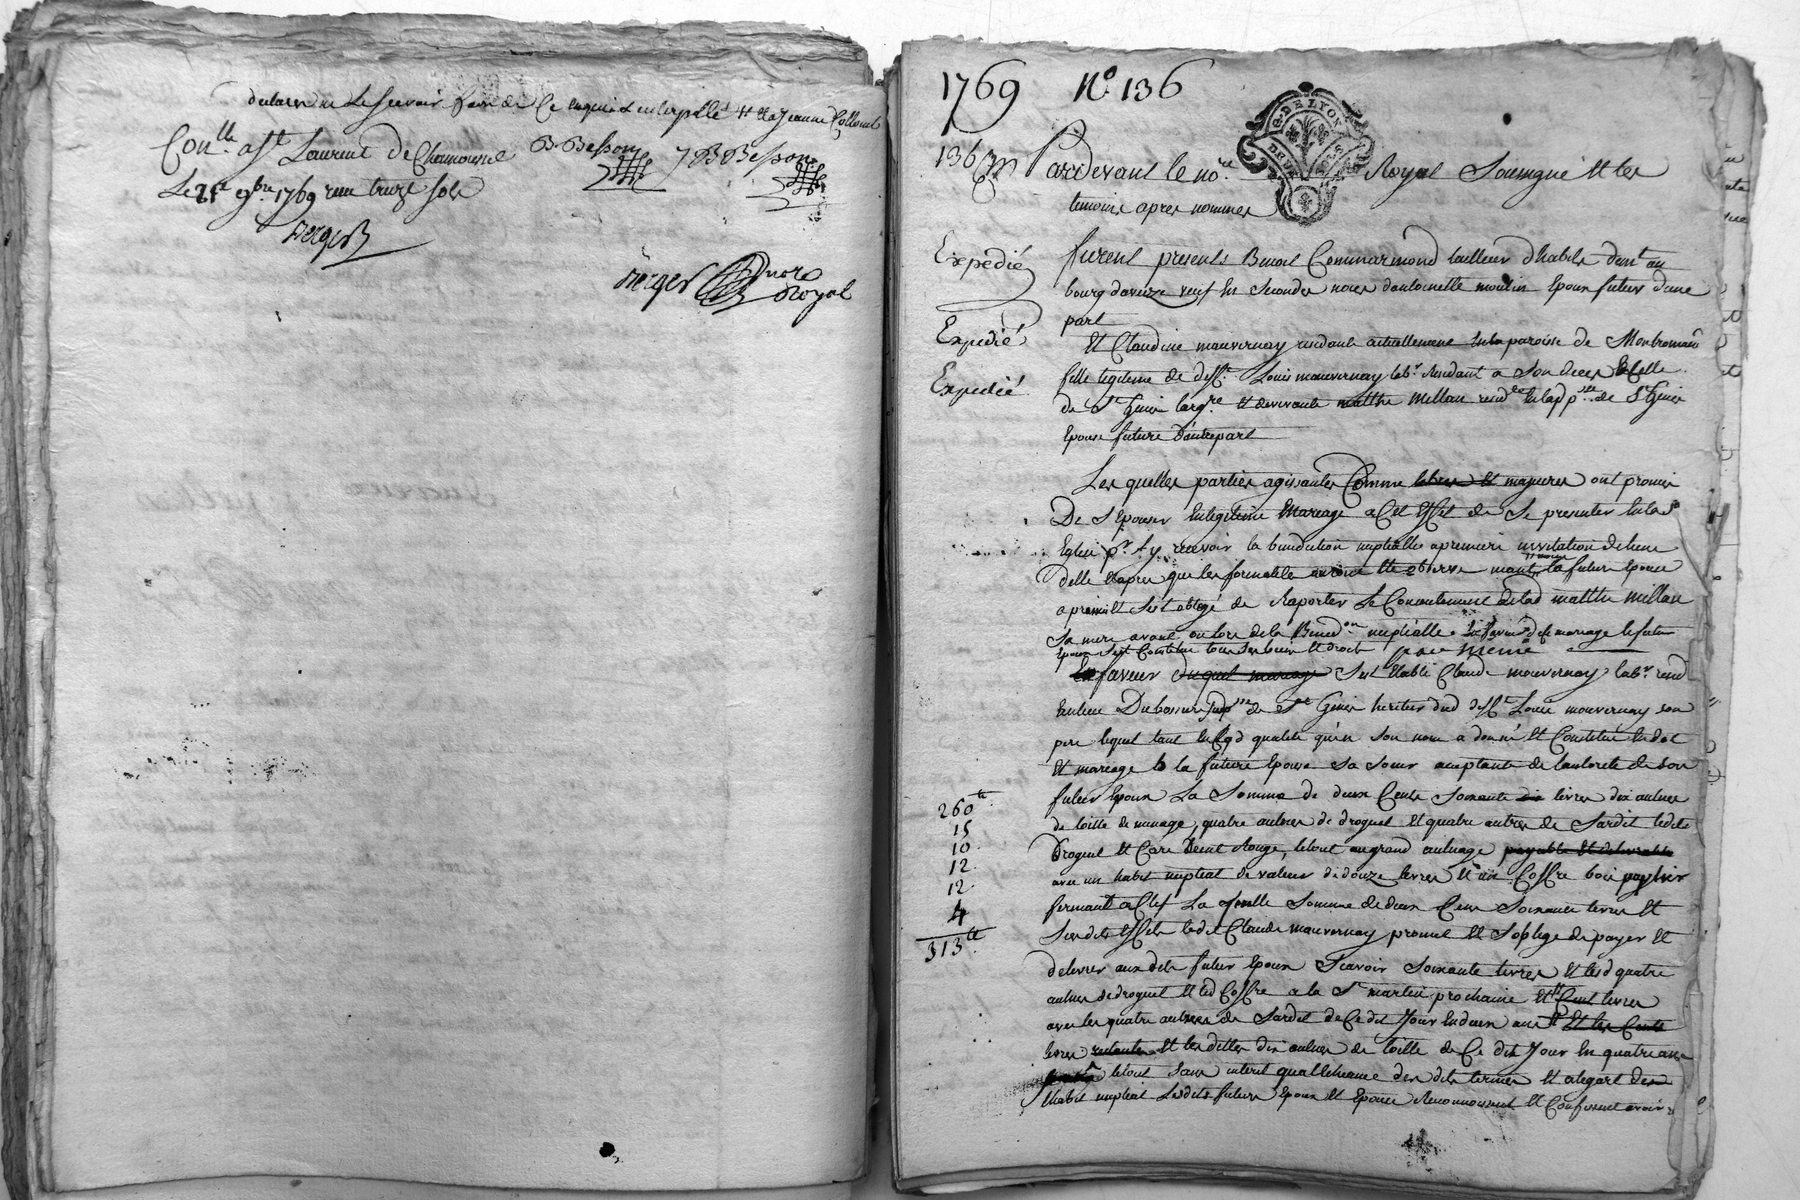 declaré ne le scavoir faire de ce enquis et interpellé # lad Jeanne Collomb
Con.lle a St Laurent de Chamousset B. Besson J B Besson
Le 21e 9bre 1769 reçu treize sols
Verger
Verger nore
Royal
1769 N.o 136
G. DE LYON
DEUX SOLS
136
Pardevant le no.re Royal Soussigné Et les
temoins apres nommes
Expedié
furent presents Benoit Commarmond tailleur d'habits dem.t au
bourg d'aveize veuf En Secondes noces d'antoinette moulin Epoux futur d'une
part
Expedié
Et Claudine mauvernay residante actuellement En la paroisse de Montromand
Expedié
fille legitime de deff.t Louis mauvernay lab.r residant a Son deces
de St Genis largre. Et de vivante matthie Millan resid.te En lad p.sse de St Genis
Epouse future D'autre part
Les quelles parties agissantes Comme libres Et majeures ont promis
De S'Epouser En legitime Mariage a Cet Effet de Se presenter En la Ste
Eglise p.r y recevoir la benediction nuptialle a premiere invitation de l'une
d'elle Et apres que les formalités auront Eté observé moins la future Epouse
a promis Et S'est obligé de Raporter Le Consentement de lad matthie millan
Sa mere avant ou lors de la Bened.on nuptialle. En faveur de Ce mariage le futur
Epoux S'est Constitué tous Ses biens Et droits par meme
En faveur du quel mariage S'est Etabli Claude mauvernay lab.r resid
En lieu Du bossu susd p.sse de St Genis heritier dud deff.t Louis mauvernay son
pere lequel tant En Cette qualité qu'en Son nom a donné Et Constitué En dot
Et mariage a la future Epouse Sa Soeur acceptante de l'autorité de Son
260tt
futur Epoux La Somme de deux Cents Soixante livres dix aulnes
15
de toille de menage, quatre aulnes de droguet Et quatre aulnes de Sardit lesdits
10
Droguet Et Caré teint Rouge, le tout au grand aulnage payable Et delivrable
12
avec un habit nuptial de valeur de douze livres Et un Coffre bois
12
fermant a Clef La quelle Somme de deux Cens Soixante livres Et
4
Susdits Effets ledit Claude mauvernay promet Et S'oblige de payer Et
313tt
delivrer aux dits futur Epoux Scavoir Soixante livres Et lesd quatre
aulnes de droguet Et led Coffre a la St martin prochaine Et Cent livres
avec les quatre aulnes de Sardit de Ce dit Jour En deux ans Et les Cents
livres restantes Et les dittes dix aulnes de toille de Ce dit Jour En quatre ans
le tout Sans interet qu'a l'echeance des dits termes Et a l'egart dud
habit nuptial Lesdits futurs Epoux Et Epouse Reconnoissent Et Confessent avoir